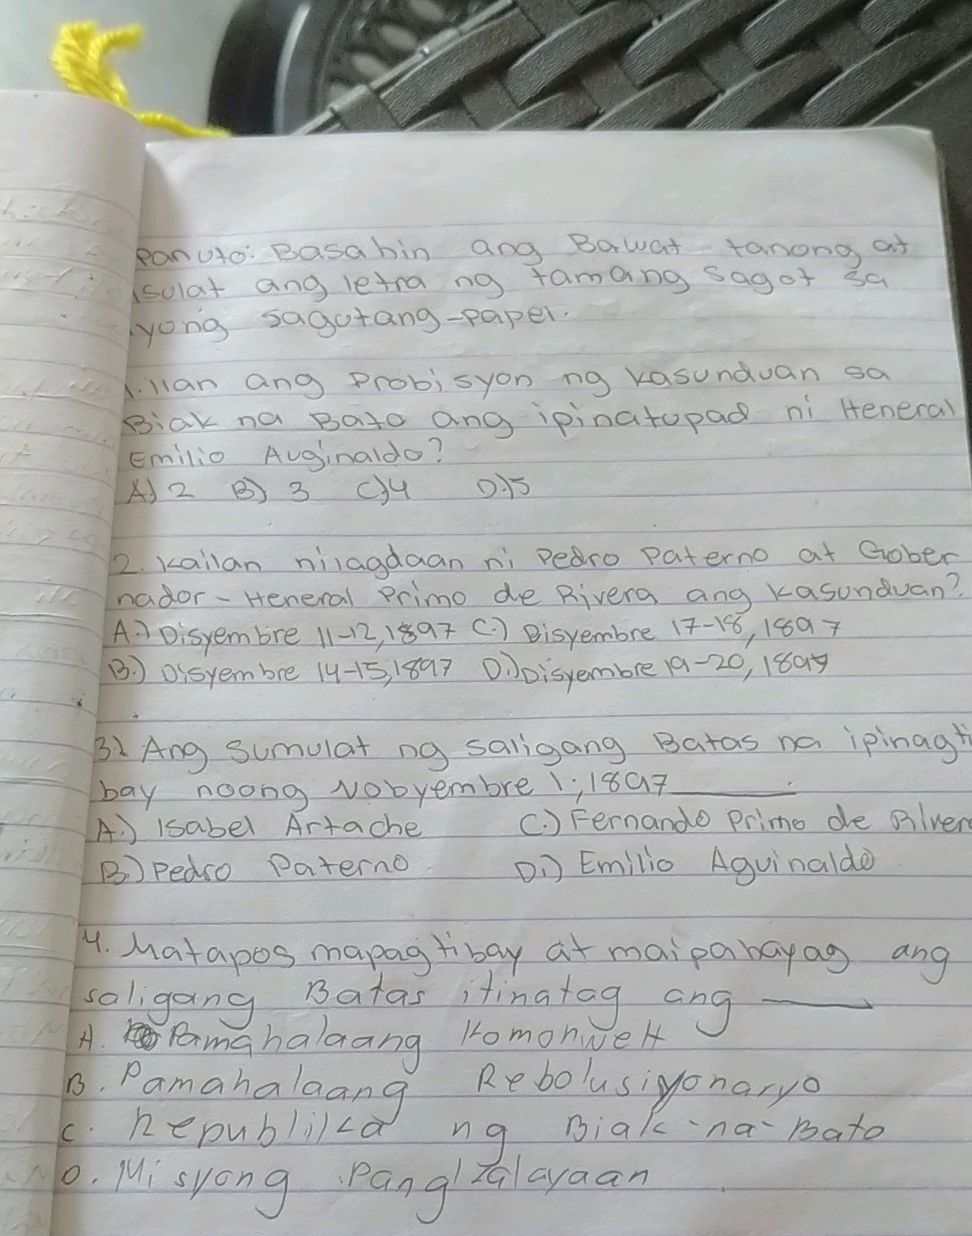 Panuto: Basahin ang Bawat tanong at
isulat ang letra ng tamang sagot sa
iyong sagutang-papel.
1. Ilan ang Probisyon ng kasunduan sa
Biak na Bato ang ipinatupad ni Heneral
Emilio Auginaldo?
A.) 2 B.) 3 C.) 4 D.) 5
2. Kailan nilagdaan ni Pedro Paterno at Gober
nador-Heneral Primo de Rivera ang kasunduan?
A.) Disyembre 11-12, 1897 C.) Disyembre 17-18, 1897
B.) Disyembre 14-15, 1897 D.) Disyembre 19-20, 1897
3.) Ang sumulat ng saligang Batas na ipinagti
bay noong Nobyembre 1, 1897 ______.
A.) Isabel Artache C.) Fernando Primo de River
B.) Pedro Paterno D.) Emilio Aguinaldo
4. Matapos mapagtibay at maipahayag ang
saligang Batas itinatag ang ____
A. Pamahalaang Komonwelt
B. Pamahalaang Rebolusiyonaryo
C. Republika ng Biak-na-Bato
D. Misyong Pangkalayaan